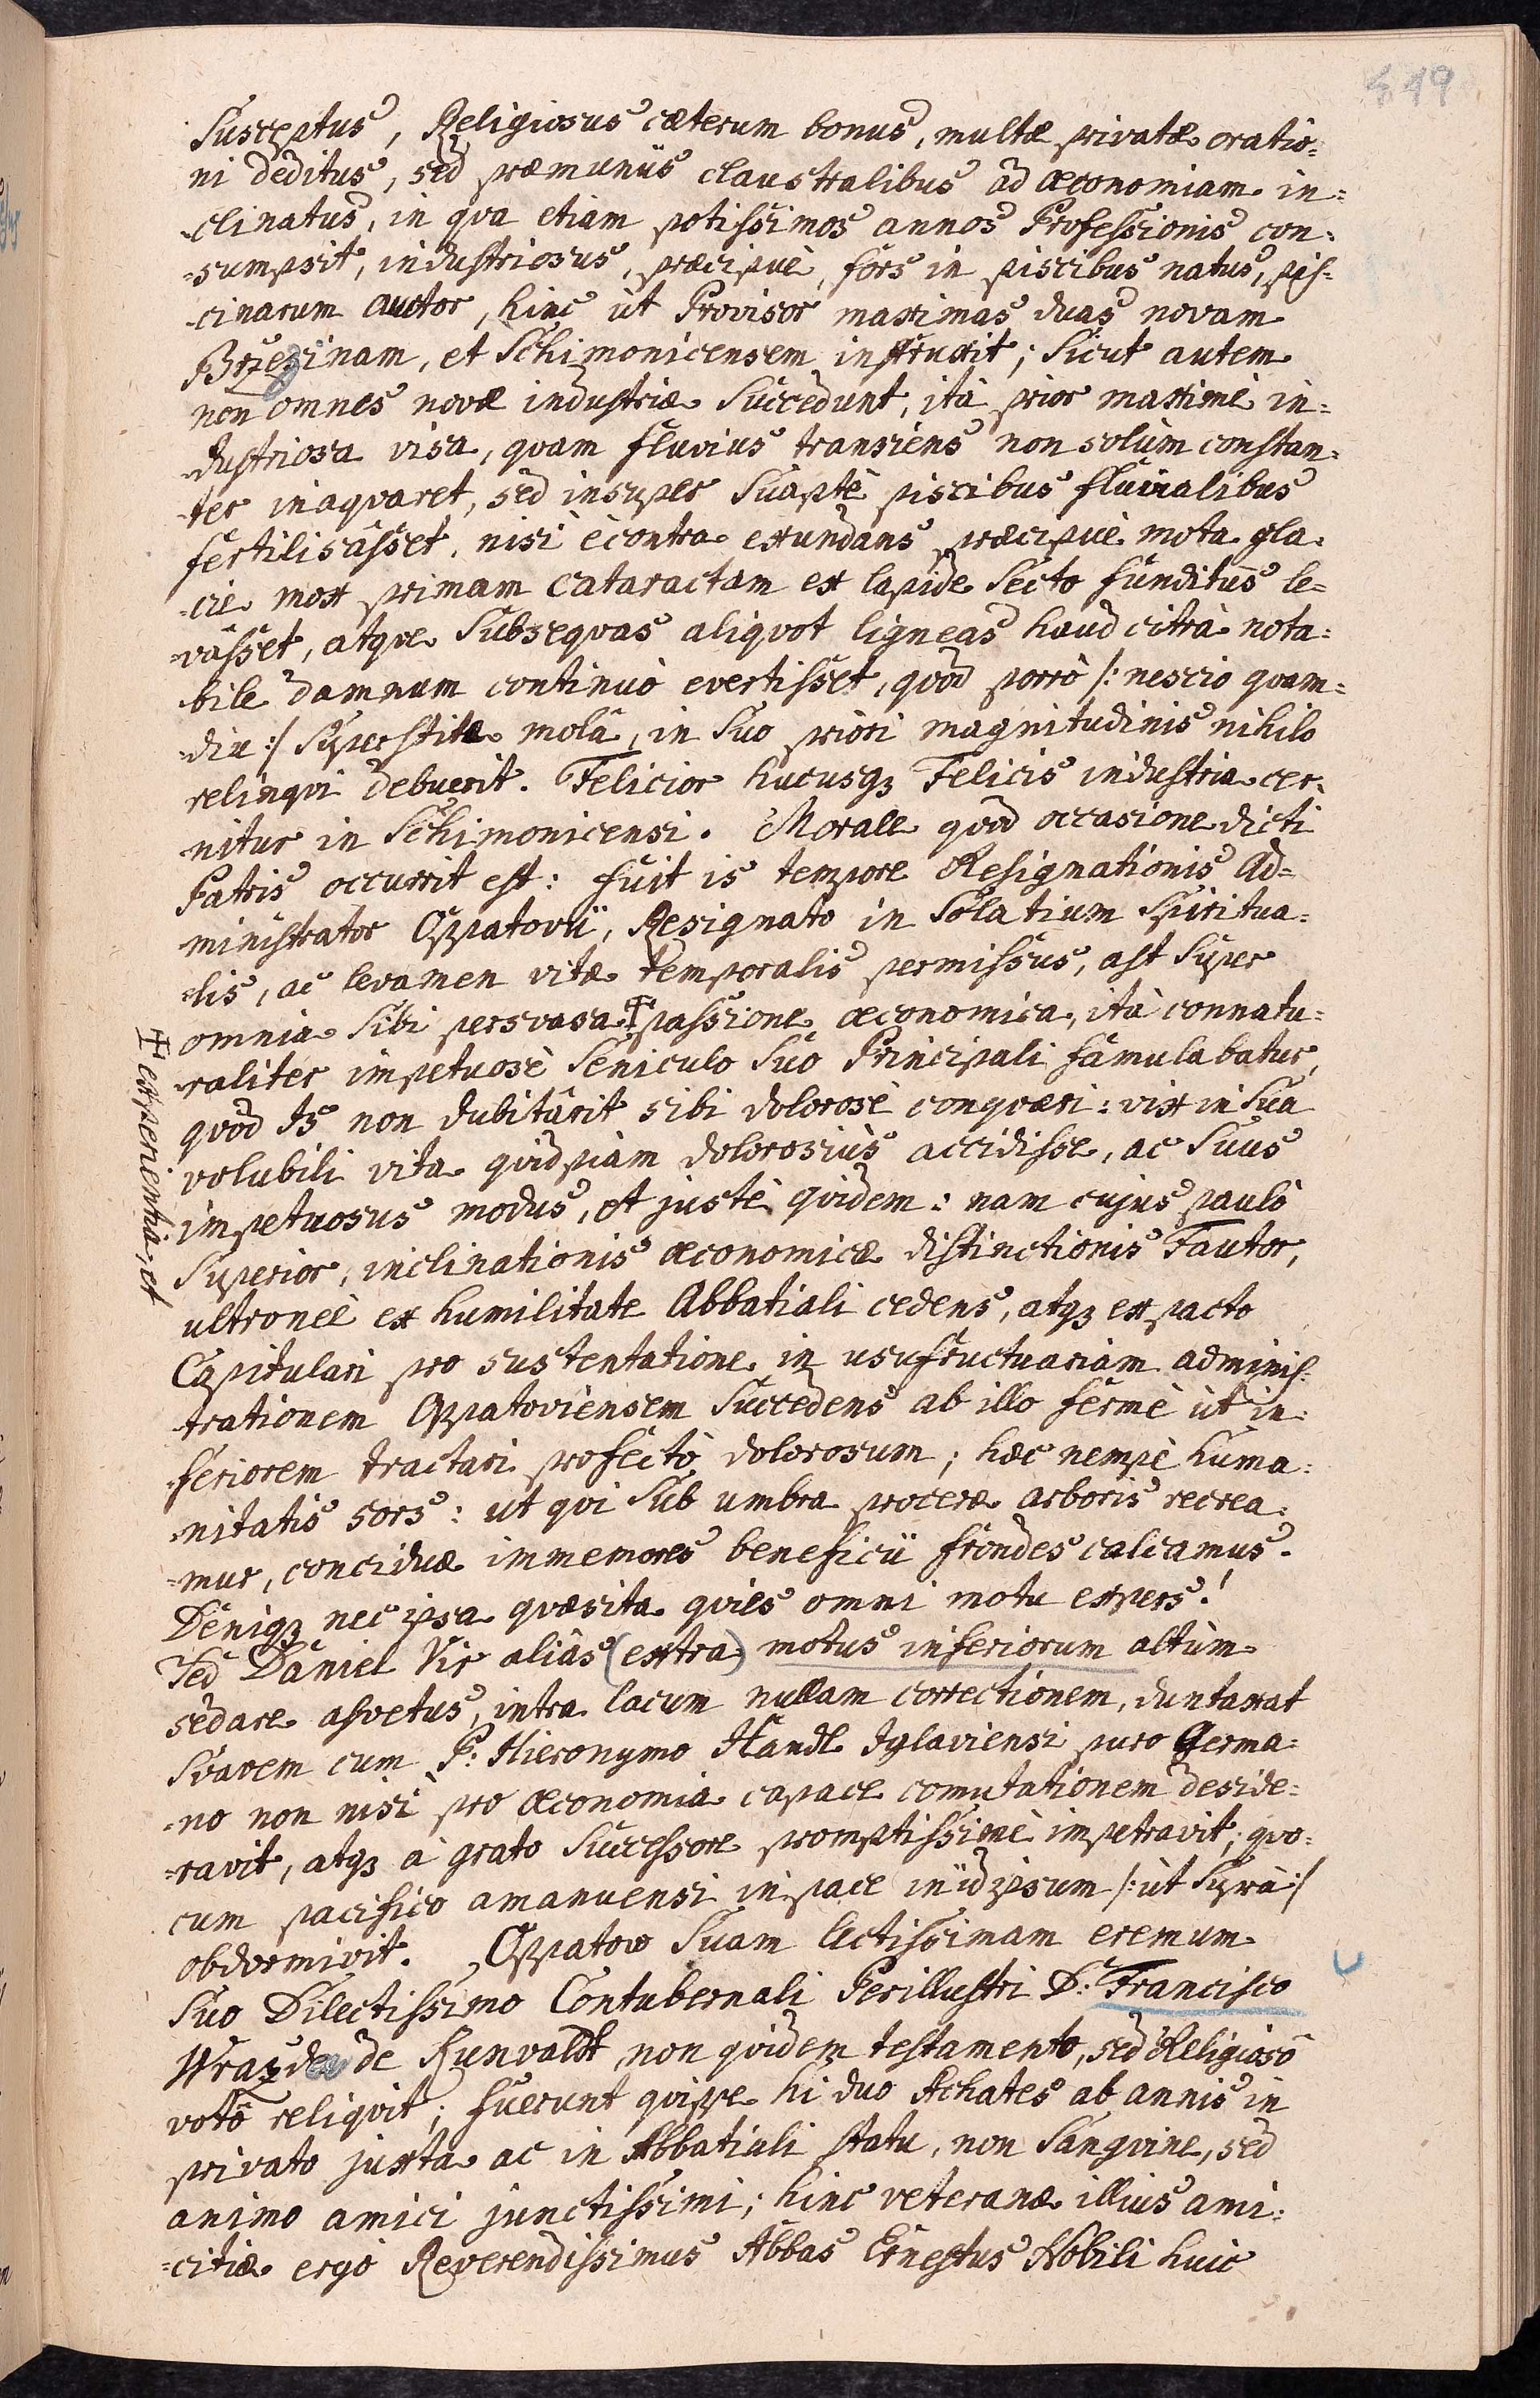 519
Susceptus, Religiosus cæterum bonus, multæ privatæ oratio=
ni deditus, sed præ muniis claustralibus ad œconomiam in=
clinatus, in qva etiam potissimos annos Professionis con=
=sumpsit, industriosus, præcipuè, fors in piscibus natus, pis=
=cinarum auctor, hinc ùt Provisor maximas duas novam
Brzezinam, et Schimonicensem instruxit; Sicut autem
non omnes novæ industriæ Succedunt, ità prior maximè in=
dustriosa visa, qvam fluvius transiens non solùm constan=
ter inaqvaret, sed insuper Suaptè piscibus fluvialibus
fertilisâsset, nisi ècontra exundans præcipuè mota gla=
cie mox primam cataractam ex lapide Secto funditùs le=
vâsset, atqve Subseqvas aliqvot ligneas haud citrà nota=
bile damnum continuò evertisset, qvòd porrò /: nescio qvam=
diu :/ Superstite molâ, in Suo priori magnitudinis nihilo
relinqvi debuerit. Felicior hucusqȝ Felicis industria cer=
nitur in Schimonicensi. Morale qvod occasione dicti
Patris occurrit est: fuit is tempore Resignationis Ad=
ministrator Oppatovii, Resignato in Solatium Spiritua=
lis, ac levamen vitæ temporalis permissus, ast Super
omnia Sibi persvasa ‡ passione œconomica, ità connatu=
raliter impetuosè Seniculo Suo Principali famulabatur,
qvòd Is non dubitârit sibi dolorosè conqværi: vix in Sua
volubili vita qvidpiam dolorosiùs accidisse, ac Suus
impetuosus modus, et justè qvidem: nam cujus paulò
Superior, inclinationis œconomicæ distinctionis Fautor,
ultroneè ex humilitate Abbatiali cedens, atqȝ ex pacto
Capitulari pro sustentatione in usufructuariam adminis=
trationem Oppatoviensem Succedens ab illo fermè ùt in=
feriorem tractari profectò dolorosum; hæc nempè huma=
nitatis sors: ut qui Sub umbra proceræ arboris recrea=
=mur, conciduæ immemores beneficii frondes calcamus.
Deniqȝ nec ipsa qvæsita qvies omni motu expers!
Sed Daniel Vir aliàs (extra) motus inferiorum altùm
sedare asvetus, intra lacum nullam correctionem, duntaxat
Svavem cum P: Hieronymo Handl Iglaviensi puro Germa=
=no non nisi pro œconomia capace comutationem deside=
=ravit, atqȝ à grato Successore promptissimè impetravit; qvo=
cum pacifico amanuensi in pace in idipsum /: ùt Suprà :/
obdormivit. Oppatow Suam lectissimam eremum
Suo Dilectissimo Contubernali Perillustri D: Francisco
Wrazda de Kunvaldt, non qvidem testamento, sed Religiosô
votô reliqvit; fuerunt qvippe hi duo Achates ab annis in
privato juxta ac in Abbatiali statu, non Sangvine, sed
animo amici junctissimi; hinc veteranæ illius ami=
=citiæ ergò Reverendissimus Abbas Ernestus Nobili huic
‡ experientia, et